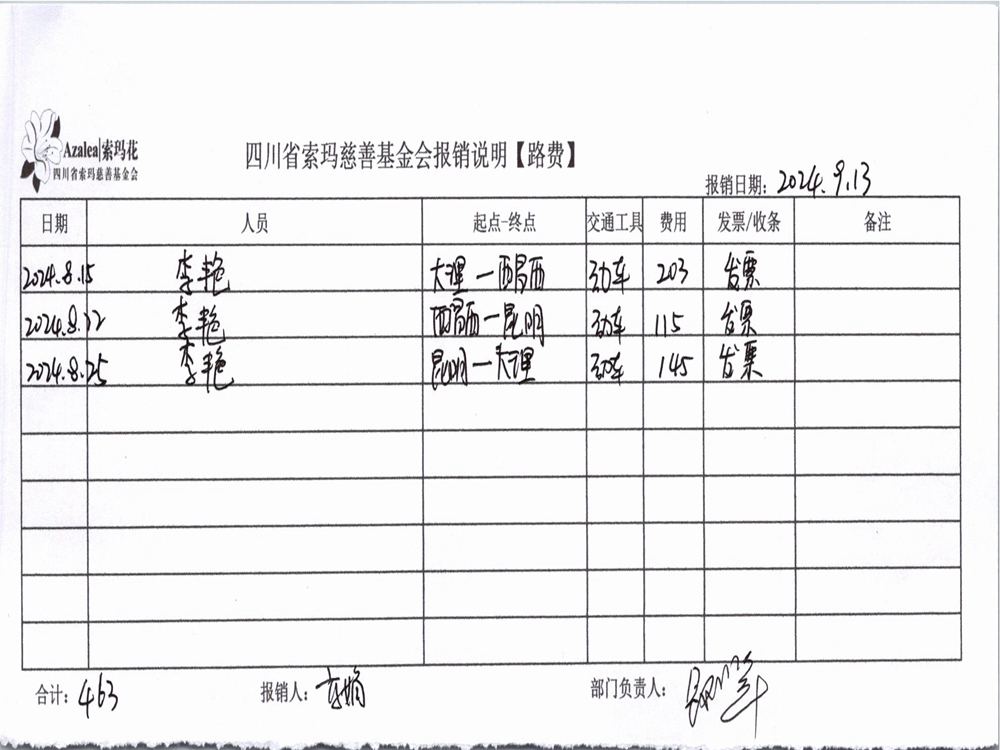 Azalea|索玛花
四川省索玛慈善基金会
四川省索玛慈善基金会报销说明【路费】
报销日期：2024.9.13
日期 人员 起点-终点 交通工具 费用 发票/收条 备注
2024.8.15 李艳 大理—西昌西 动车 203 发票
2024.8.22 李艳 西昌西—昆明 动车 115 发票
2024.8.25 李艳 昆明—大理 动车 145 发票
合计：463 报销人： 部门负责人：